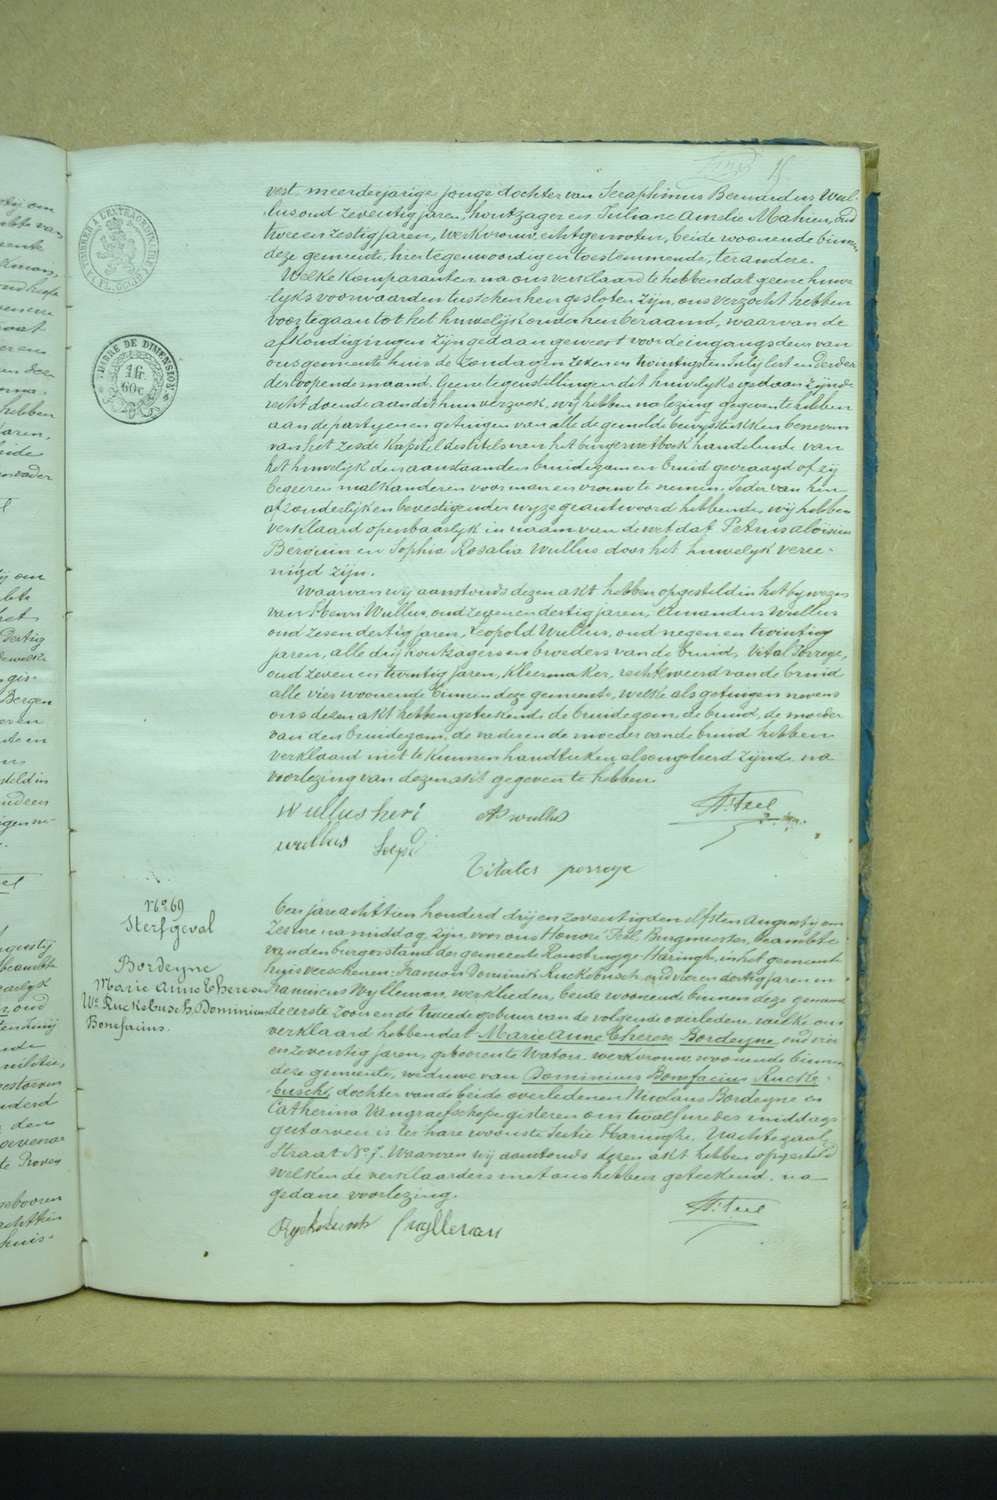 15
vest, meerderjarige jonge dochter van Seraphinus Bernardus Wul-
lus oud zeventig jaren houtzager en Juliane Amelie Mahieu, oud
twee en zestig jaren, werkvrouw, echtgenooten, beide woonende binnen
deze gemeente, hier tegenwoordig en toestemmende, ter andere.
Welke komparanten na ons verklaard te hebben dat geene huwe-
lijks voorwaarden tusschen hen gesloten zijn, ons verzocht hebben
voortegaan tot het huwelijk onder hen beraamd, waarvan de
afkondigingen zijn gedaan geweest voor de ingangsdeur van
ons gemeente huis de zondagen zeven en twintigsten July lest en derden
der loopende maand. Geen tegenstellingen dit huwelijk gedaan zijnde
recht doende aan dit hun verzoek, wij hebben na lezing gegeven te hebben
aan de partyen en getuigen van alle de gemelde bewijsstukken benevens
van het zesde kapittel des titels van het burger wetboek handelende van
het huwelijk den aanstaanden bruidegom en bruid gevraagd of zij
begeeren malkanderen voor man en vrouw te nemen. Ieder van hen
afzonderlijk en bevestigender wyze geantwoord hebbende, wij hebben
verklaard openbaarlijk in naam van de wet dat Petrus Aloisius
Berquin en Sophia Rosalia Wullus door het huwelijk veree-
nigd zijn.
Waarvan wij aanstonds dezen akt hebben opgesteld in het bywezen
van Henri Wullus, oud zeven en dertig jaren, Amandus Wullus
oud zes en dertig jaren, Leopold Wullus, oud negen en twintig
jaren, alle drij houtzagers en broeders van de bruid, Vital Porreye,
oud zeven en twintig jaren, kleermaker, rechtzweer van de bruid
alle vier woonende binnen deze gemeente, welke als getuigen nevens
ons dezen akt hebben geteekend, de bruidegom, de bruid, de moeder
van den bruidegom, de vader en de moeder van de bruid hebben
verklaard niet te kunnen handteeken als ongeleerd zijnde na
voorlezing van dezen akt gegeven te hebben.
Wullus heri A wullus
wullus
Vitales porreye
TIMBRE DE DIMENSION
1 fr
60c
N° 69
Sterfgeval
Bordeyne
Marie Anne Therese
We Ruckebusch, Dominicus
Bonefacius.
Den jare achttien honderd drij en zeventig den elfsten Augusty om
zes ure namiddag, zijn voor ons Honoré Feel, Burgmeester, beambte
van den burgerstand der gemeente Rousbrugge-Haringhe, in het gemeente
huis verschenen: Dominik Ruckebusch, oud vier en dertig jaren en
Franciscus Wylleman, werklieden, beide woonende binnen deze gemeente
de eerste zoon en de tweede gebuur van de volgende overledene, welke ons
verklaard hebben dat Marie Anne Therese Bordeyne oud vier
en zeventig jaren, geboren te Watou, werkvrouw, woonende binnen
deze gemeente, weduwe van Dominicus Bonefacius Rucke-
busch, dochter van de beide overledenen Nicolaus Bordeyne en
Catherina Vangraefschepe gisteren om twalf ure des middags
gestorven is ter hare woonste Sectie Haringhe, Nachtegaal
straat N° 7. Waarvan wij aanstonds dezen akt hebben opgesteld
welken de verklaarders met ons hebben geteekend, na
gedane voorlezing.